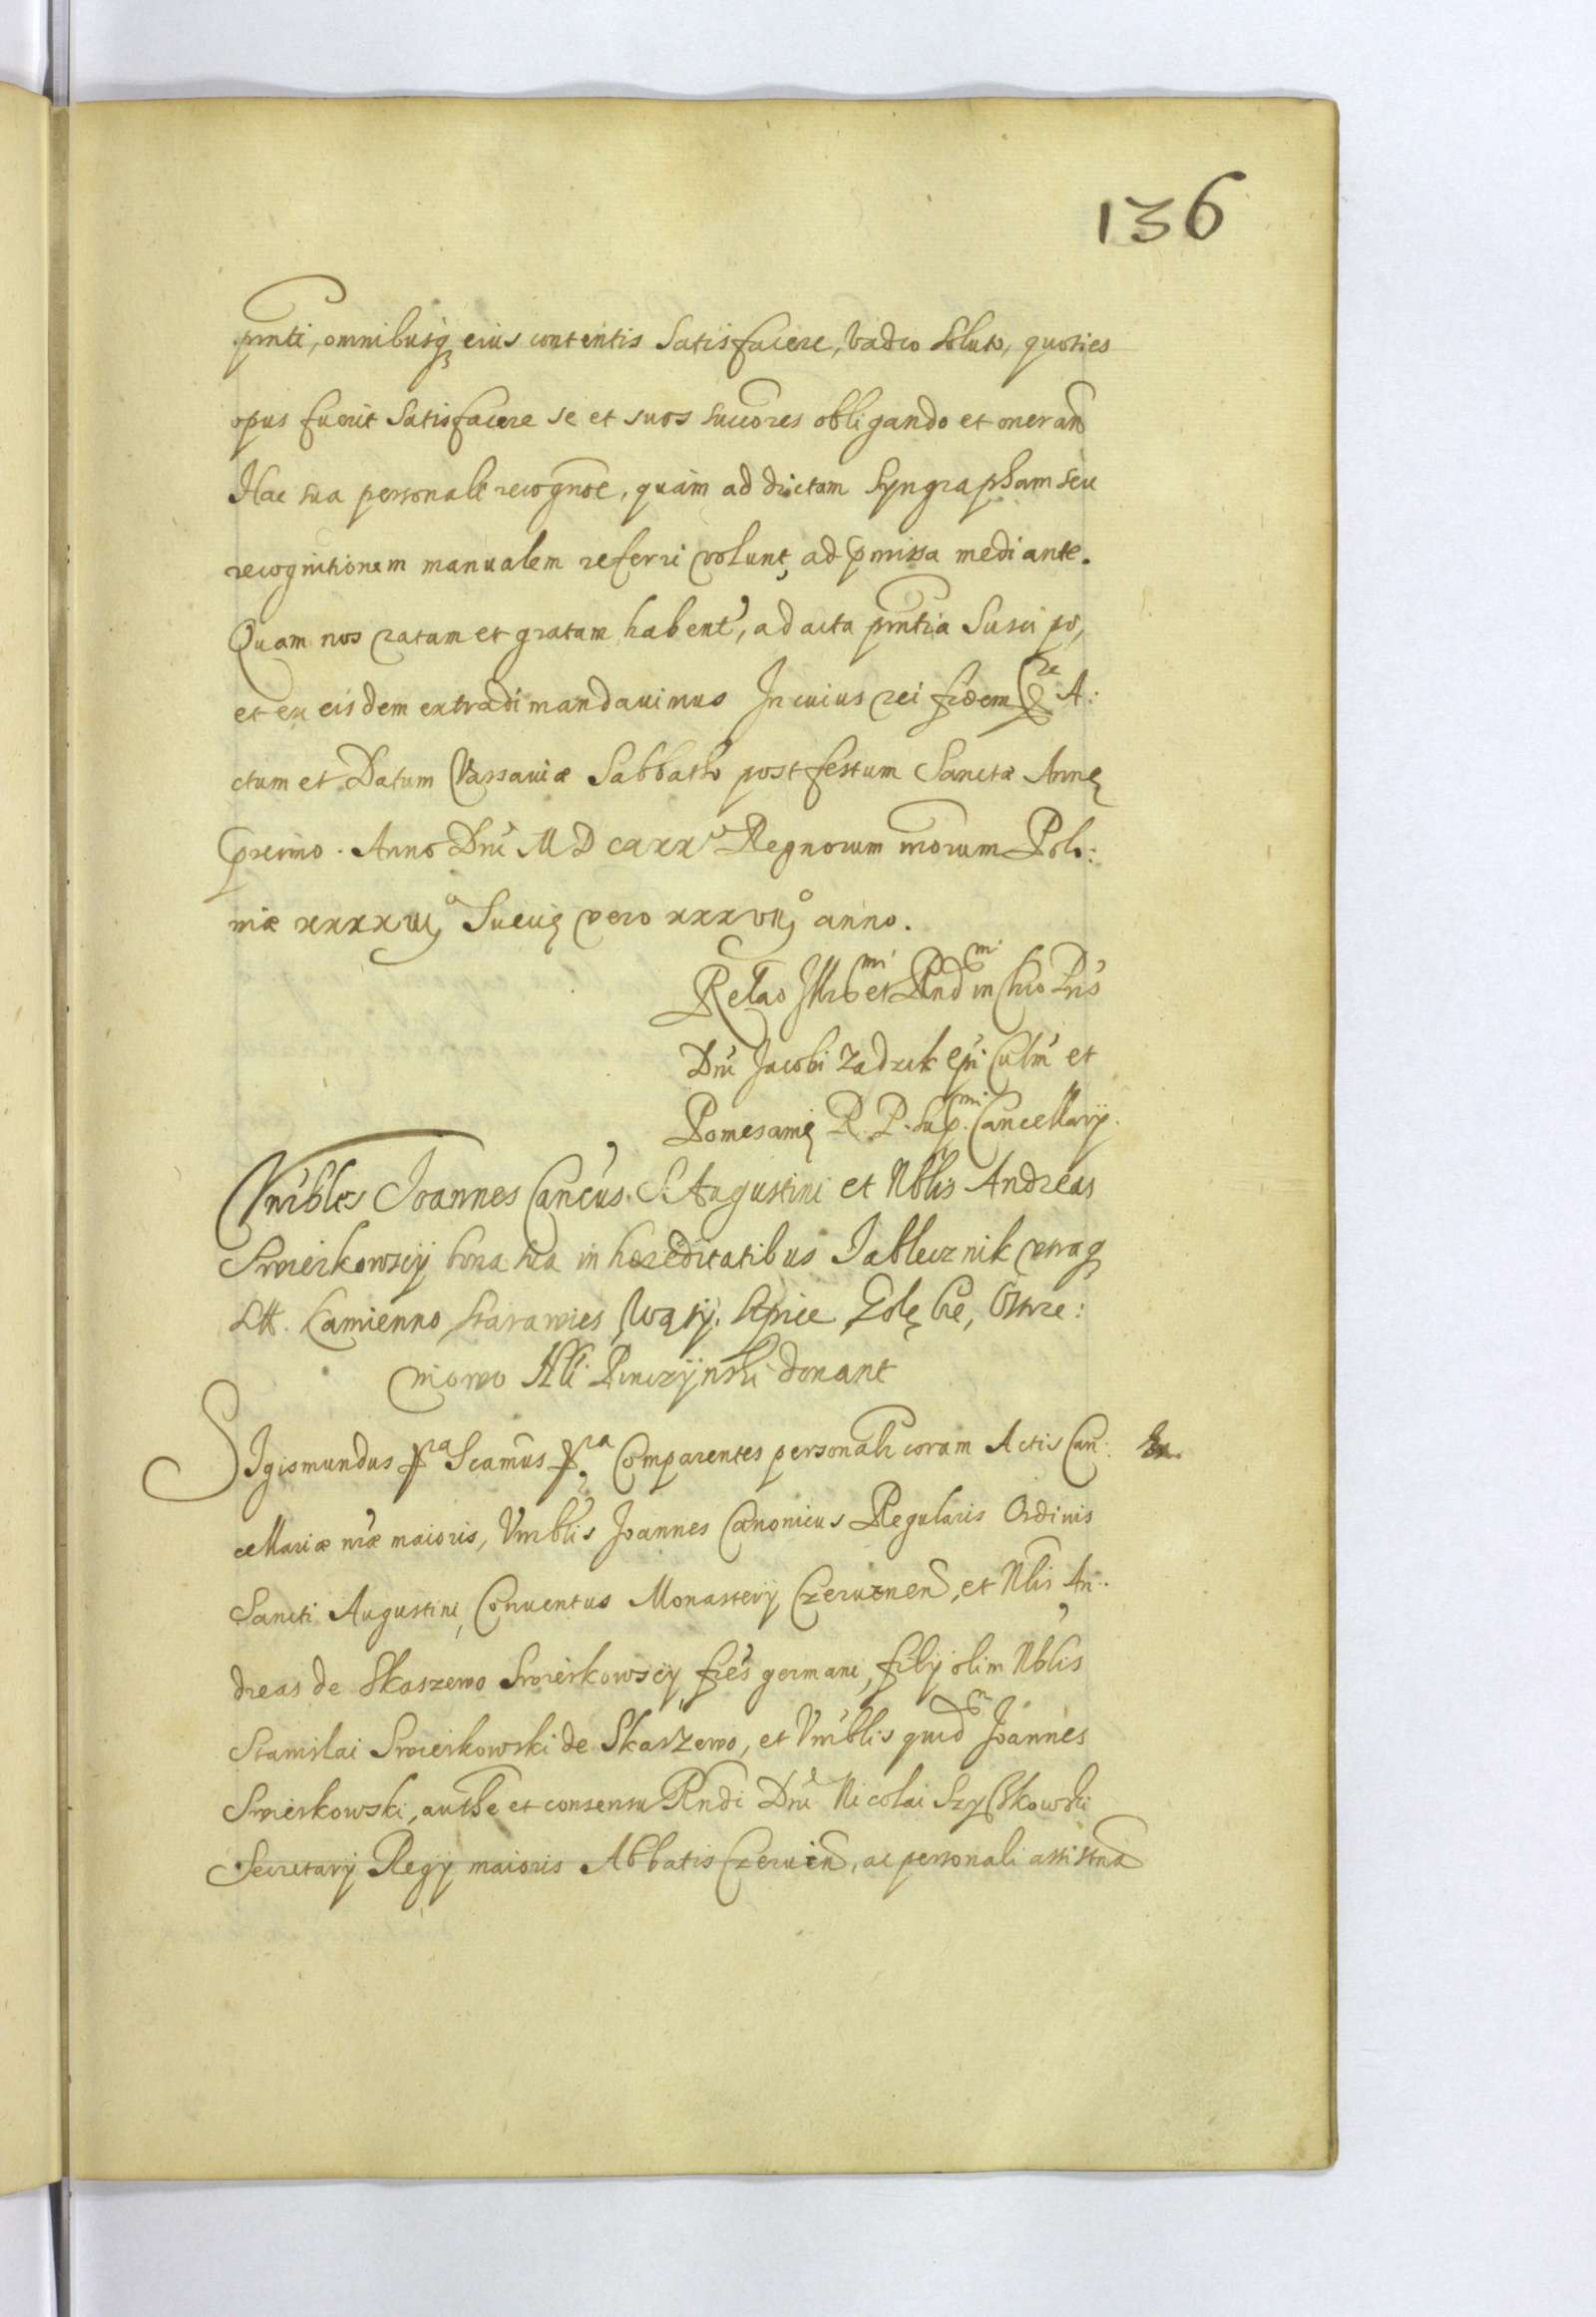 136
prnti, omnibusq eius contentis satisfacere, vadio soluto, quoties
opus fuerit satisfacere se et suos succores obligando et oneran
Hac sua personali recognoe, quam ad dictam Syngrapham seu
recognitionem manualem referri volunt, ad pmissa mediante.
Quam nos ratam et gratam habent, ad acta prntia suscipo,
et ex eisdem extradi mandauimus In cuius rei fidem A:
ctum et Datum Varsauiæ Sabbatho post festum Sanctæ Annę
proximo. Anno Dni M D cxxx Regnorum nrorum Polo:
niæ xxxxiii Suecię vero xxxvii anno.
Relao Illrmi et Rndmi in Chro Pris
Dni Jacobi Zadzik Epi Culm et
Pomesanię R. P. supmi Cancellarij.
Vnrbles Joannes Cancus S. Augustini et Nblis Andreas
Smierkowscij bona sua in hæreditatibus Jablecznik vtraq
Ltt. Camienno Starawies, Wąty, Lipie, Golębie, Ostrze:
niowo Nli Pinczynski donant
SIgismundus pra Seamus pra Comparentes personalr coram Actis Can:
cellariæ nræ maioris, Vnrblis Joannes Canonicus Regularis Ordinis
Sancti Augustini, Conuentus Monasterij Czeruenen, et Nblis An:
dreas de Skaszewo Smierkowscij frēs germani, filij olim Nblis
Stanislai Smierkowski de Skaszewo, et Vnrblis quid Joannes
Smierkowski, authe et consensu Rndi Dni Nicolai Szyszkowski
Secretarij Regij maioris Abbatis Czeruen, ac personali assistna